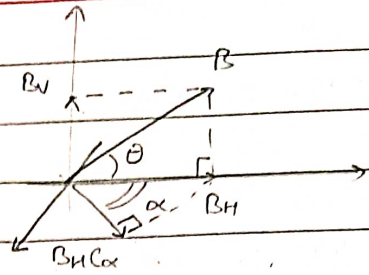 B
Bv
θ
α
BH
BHCα